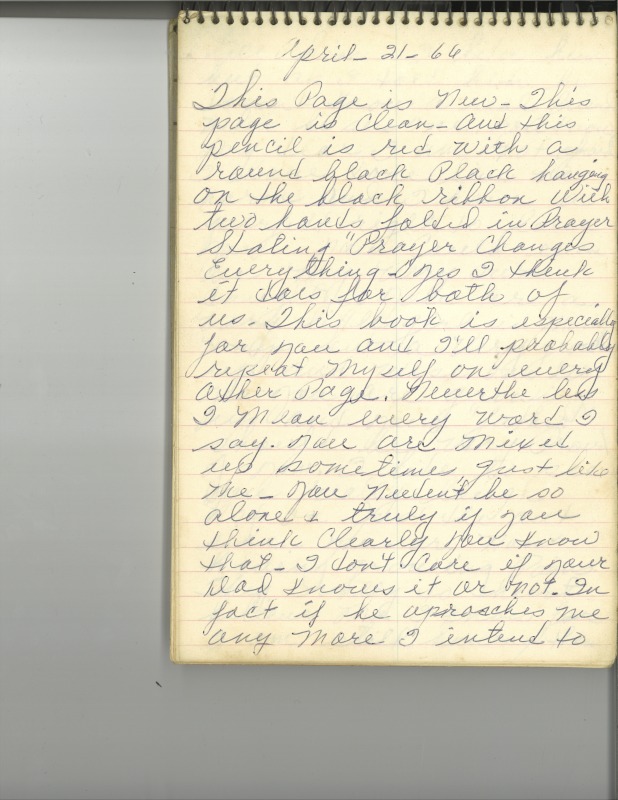 April - 21 - 66
This Page is New - This
page is clean - and this
pencil is red with a
round black Plack hanging
on the black ribbon with
two hands folded in Prayer
Stating "Prayer Changes
Everything - Yes I think
it does for both of
us. This book is especially
for you and I'll probably
repeat Myself on every
other Page. Neverthe less
I Mean every word I
say. You are Mixed
up sometimes, just like
me - you Needen't be so
alone & truly if you
think clearly you know
that - I don't care if your
Dad knows it or not. In
fact if he aproaches me
any more I intend to